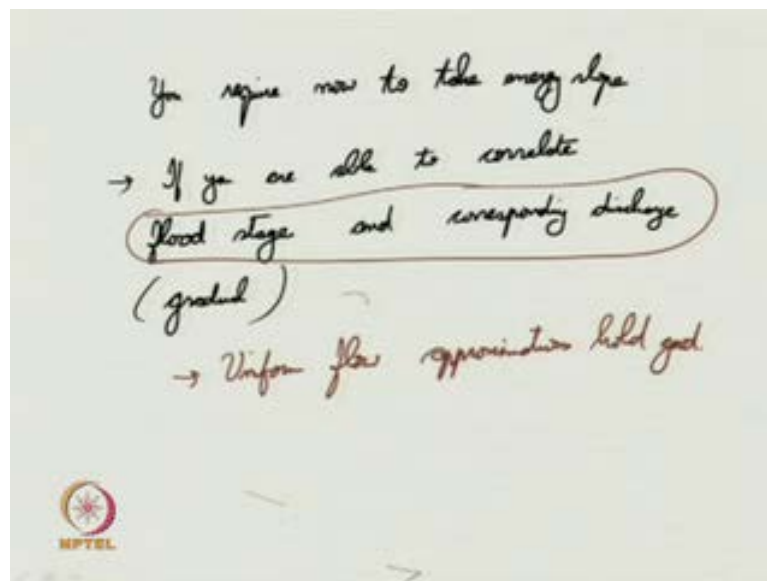 You require now to take energy slope
→ If you are able to correlate
flood stage and corresponding discharge
(gradual)
→ Uniform flow approximation hold good.
NPTEL